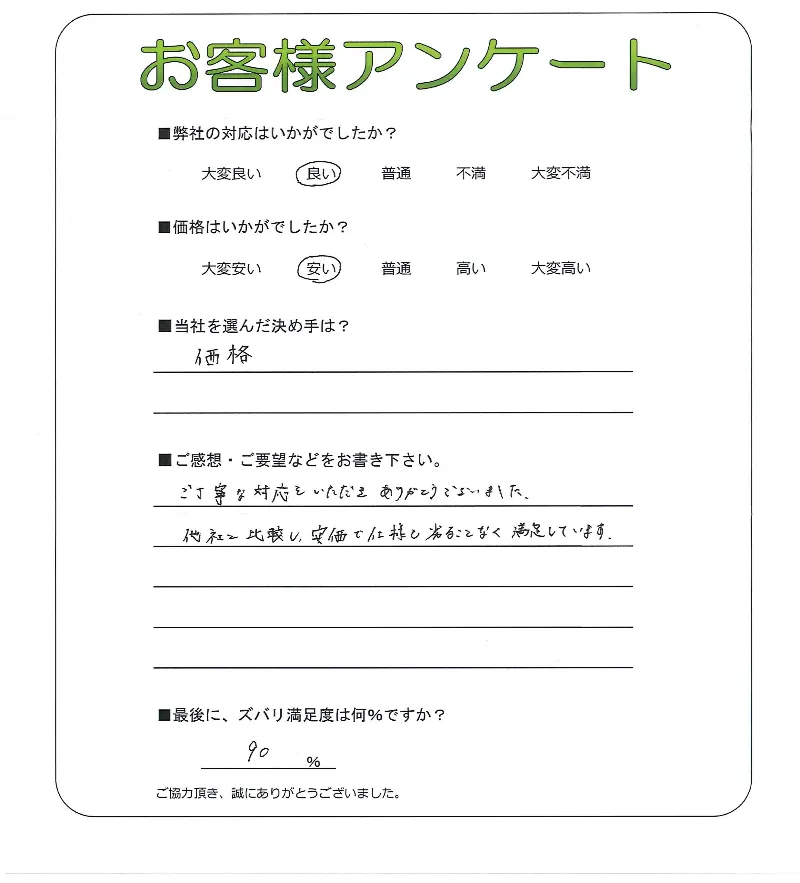 お客様アンケート
■弊社の対応はいかがでしたか？
大変良い 良い 普通 不満 大変不満
■価格はいかがでしたか？
大変安い 安い 普通 高い 大変高い
■当社を選んだ決め手は？
価格
■ご感想・ご要望などをお書き下さい。
ご丁寧な対応をいただき ありがとうございました.
他社と比較し、安価で仕様も劣ることなく満足しています.
■最後に、ズバリ満足度は何%ですか？
90 %
ご協力頂き、誠にありがとうございました。